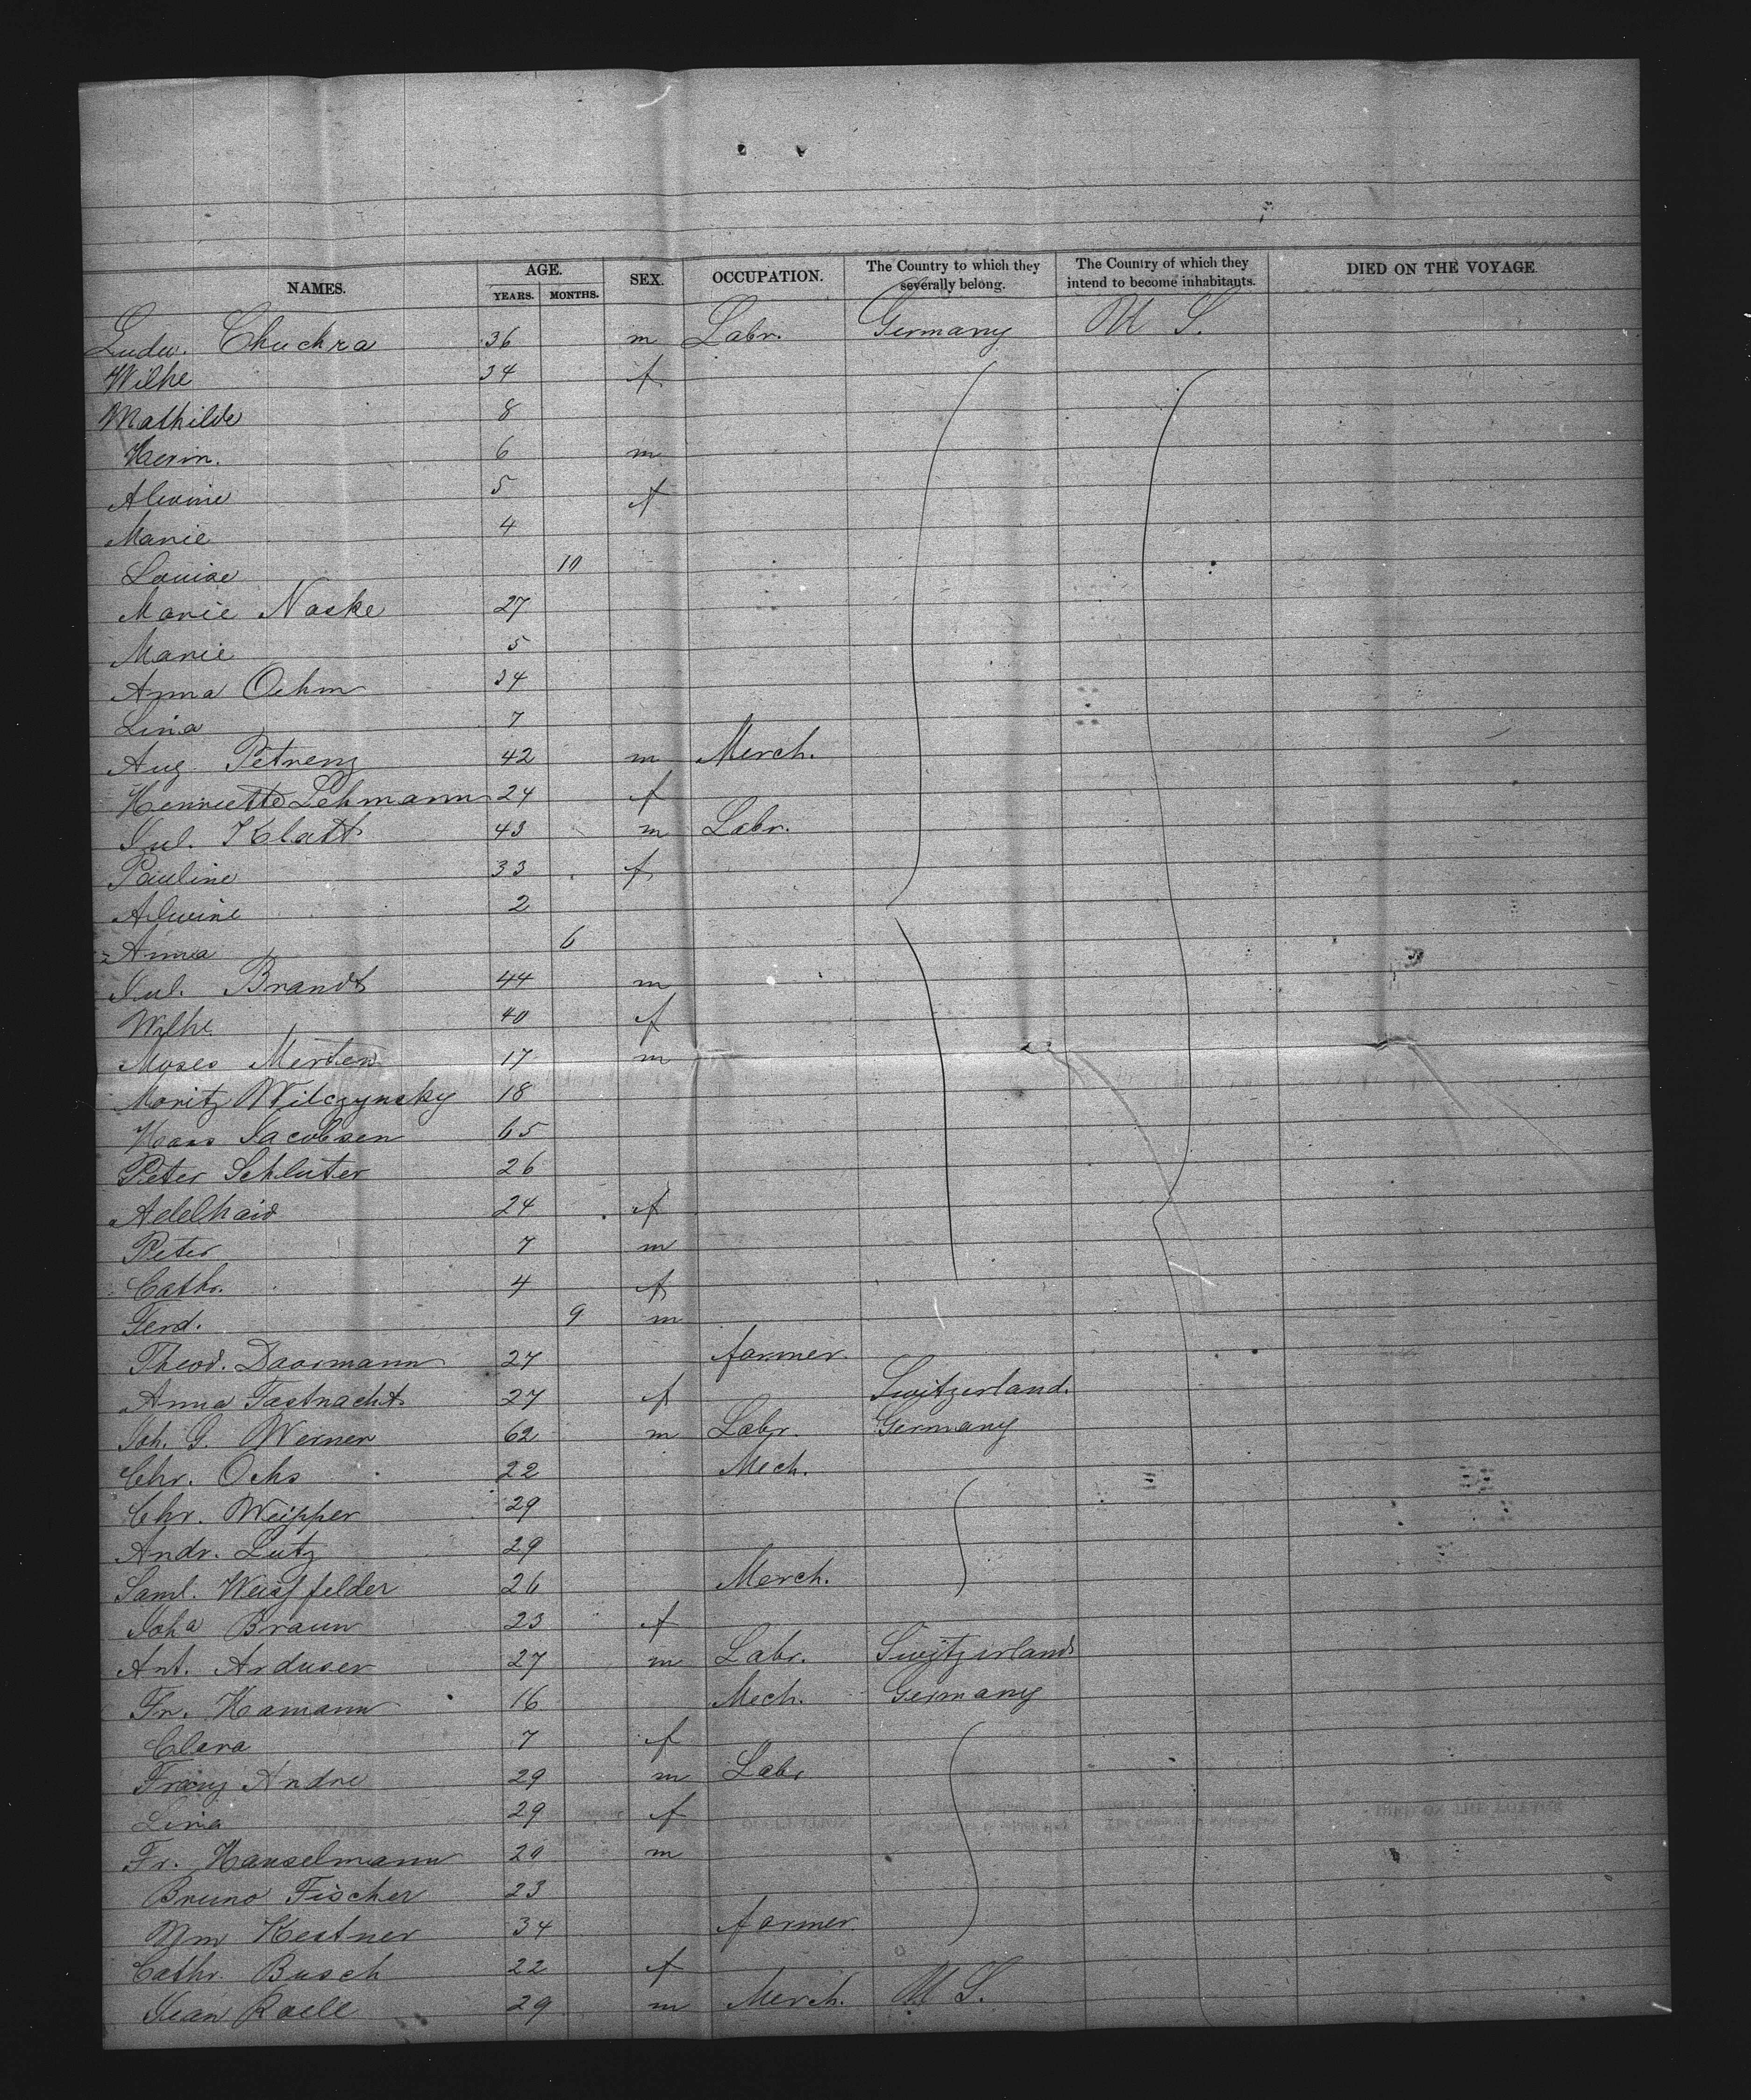 NAMES. AGE. SEX. OCCUPATION. The Country to which they severally belong. The Country of which they intend to become inhabitants. DIED ON THE VOYAGE.
YEARS. MONTHS.
Ludw. Chuchra 36 m Labr. Germany U S.
Wilhe 34 f
Mathilde 8
Herm. 6 m
Alwine 5 f
Marie 4
Louise 10
Marie Naske 27
Marie 5
Anna Oehm 34
Lina 7
Aug. Petrenz 42 m Merch.
Henriette Lehmann 24 f
Jul. Klatt 43 m Labr.
Pauline 33 f
Alwine 2
Anna 6
Jul. Brandt 44 m
Wilhe 40 f
Moses Merten 17 m
Moritz Wilczynsky 18
Hans Jacobsen 65
Peter Schluter 26
Adelhaid 24 f
Peter 7 m
Cathr. 4 f
Ferd. 9 m
Theod. Daormann 27 farmer
Anna Fastnacht 27 f Switzerland.
Joh. G. Werner 62 m Labr. Germany
Chr. Ochs 22 Mech.
Chr. Weipper 29
Andr. Lutz 29
Saml. Weissfelder 26 Merch.
Joha Braun 23 f
Ant. Arduser 27 m Labr. Switzerland
Fr. Hamann 16 Mech. Germany
Clara 7 f
Franz Andre 29 m Labr
Lina 29 f
Fr. Hanselmann 20 m
Bruno Fischer 23
Wm Kestner 34 farmer
Cathr. Busch 22 f
Jean Roell 29 m Merch. U S.